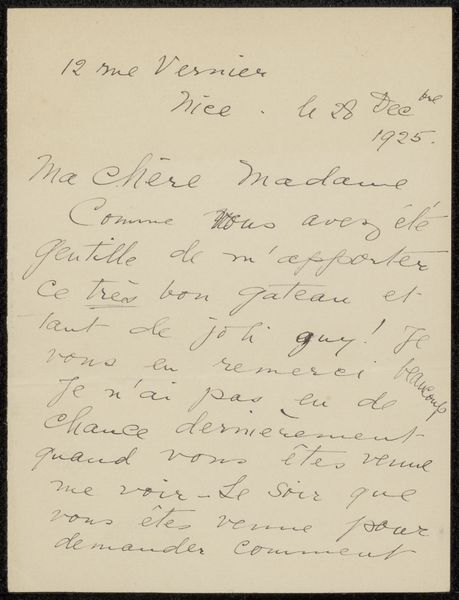 12 rue Vernier
Nice. le 28 Decbre
1925.
Ma chère Madame
Comme vous avez été
gentille de m'apporter
ce très bon gateau et
tant de joli guy! Je
vous en remerci beaucoup
Je n'ai pas eu de
chance dernièrement
quand vous êtes venue
me voir - Le soir que
vous êtes venue pour
demander comment